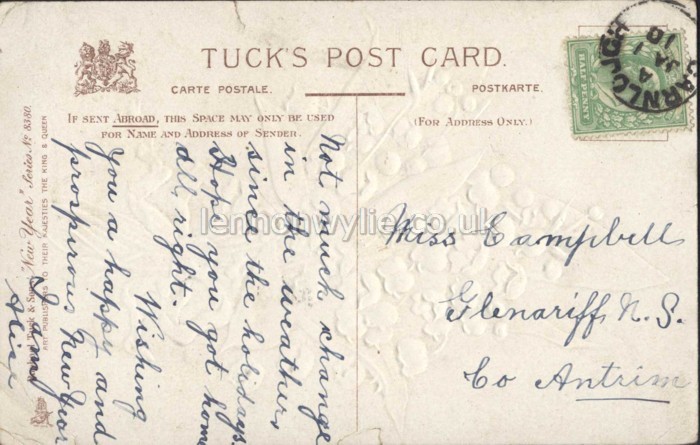 TUCK'S POST CARD.
CARTE POSTALE.
POSTKARTE.
IF SENT ABROAD, THIS SPACE MAY ONLY BE USED
FOR NAME AND ADDRESS OF SENDER.
(FOR ADDRESS ONLY.)
HALF PENNY
CARNLOUGH
A
JA 1
10
Not much change
in the weather
since the holidays
Hope you got home
all right.
Wishing
you a happy and
prosperous New Year
Alice
Miss Campbell
Glenariff N.S.
Co Antrim
Tuck & Sons' "New Year" Series No 8380.
ART PUBLISHERS TO THEIR MAJESTIES THE KING & QUEEN
lennonwylie.co.uk